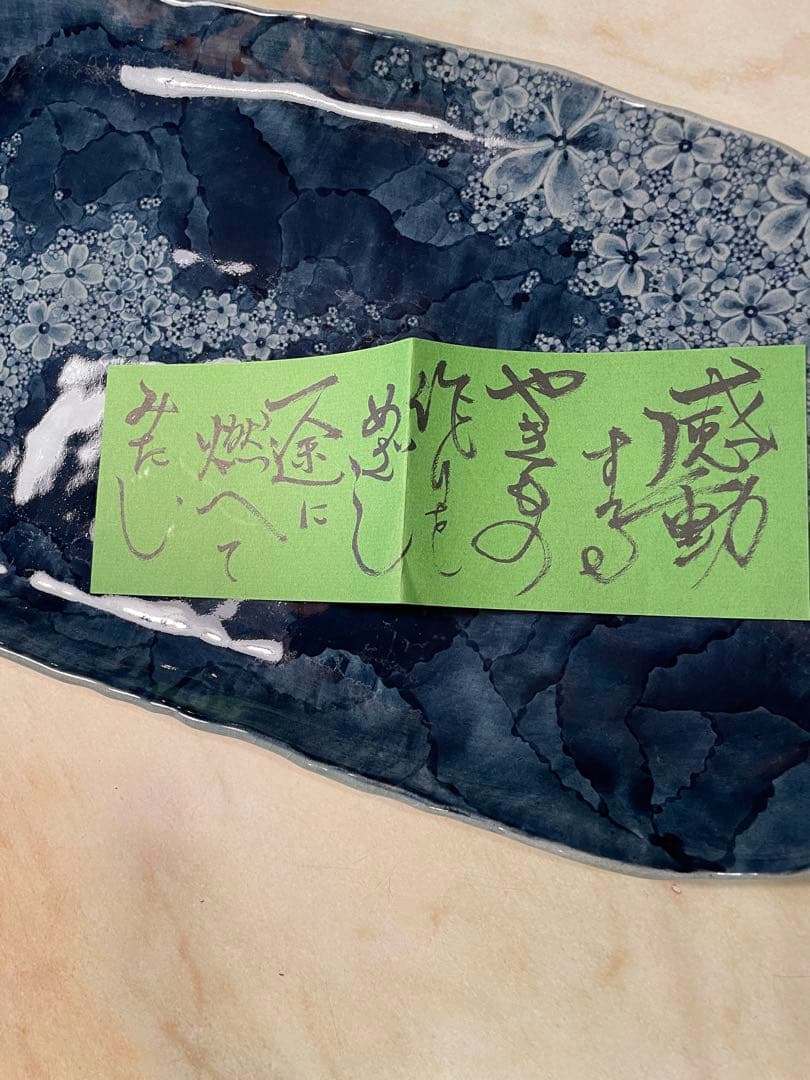 感動
する
やきもの
作りを
めざし
一途に
燃へて
みたし